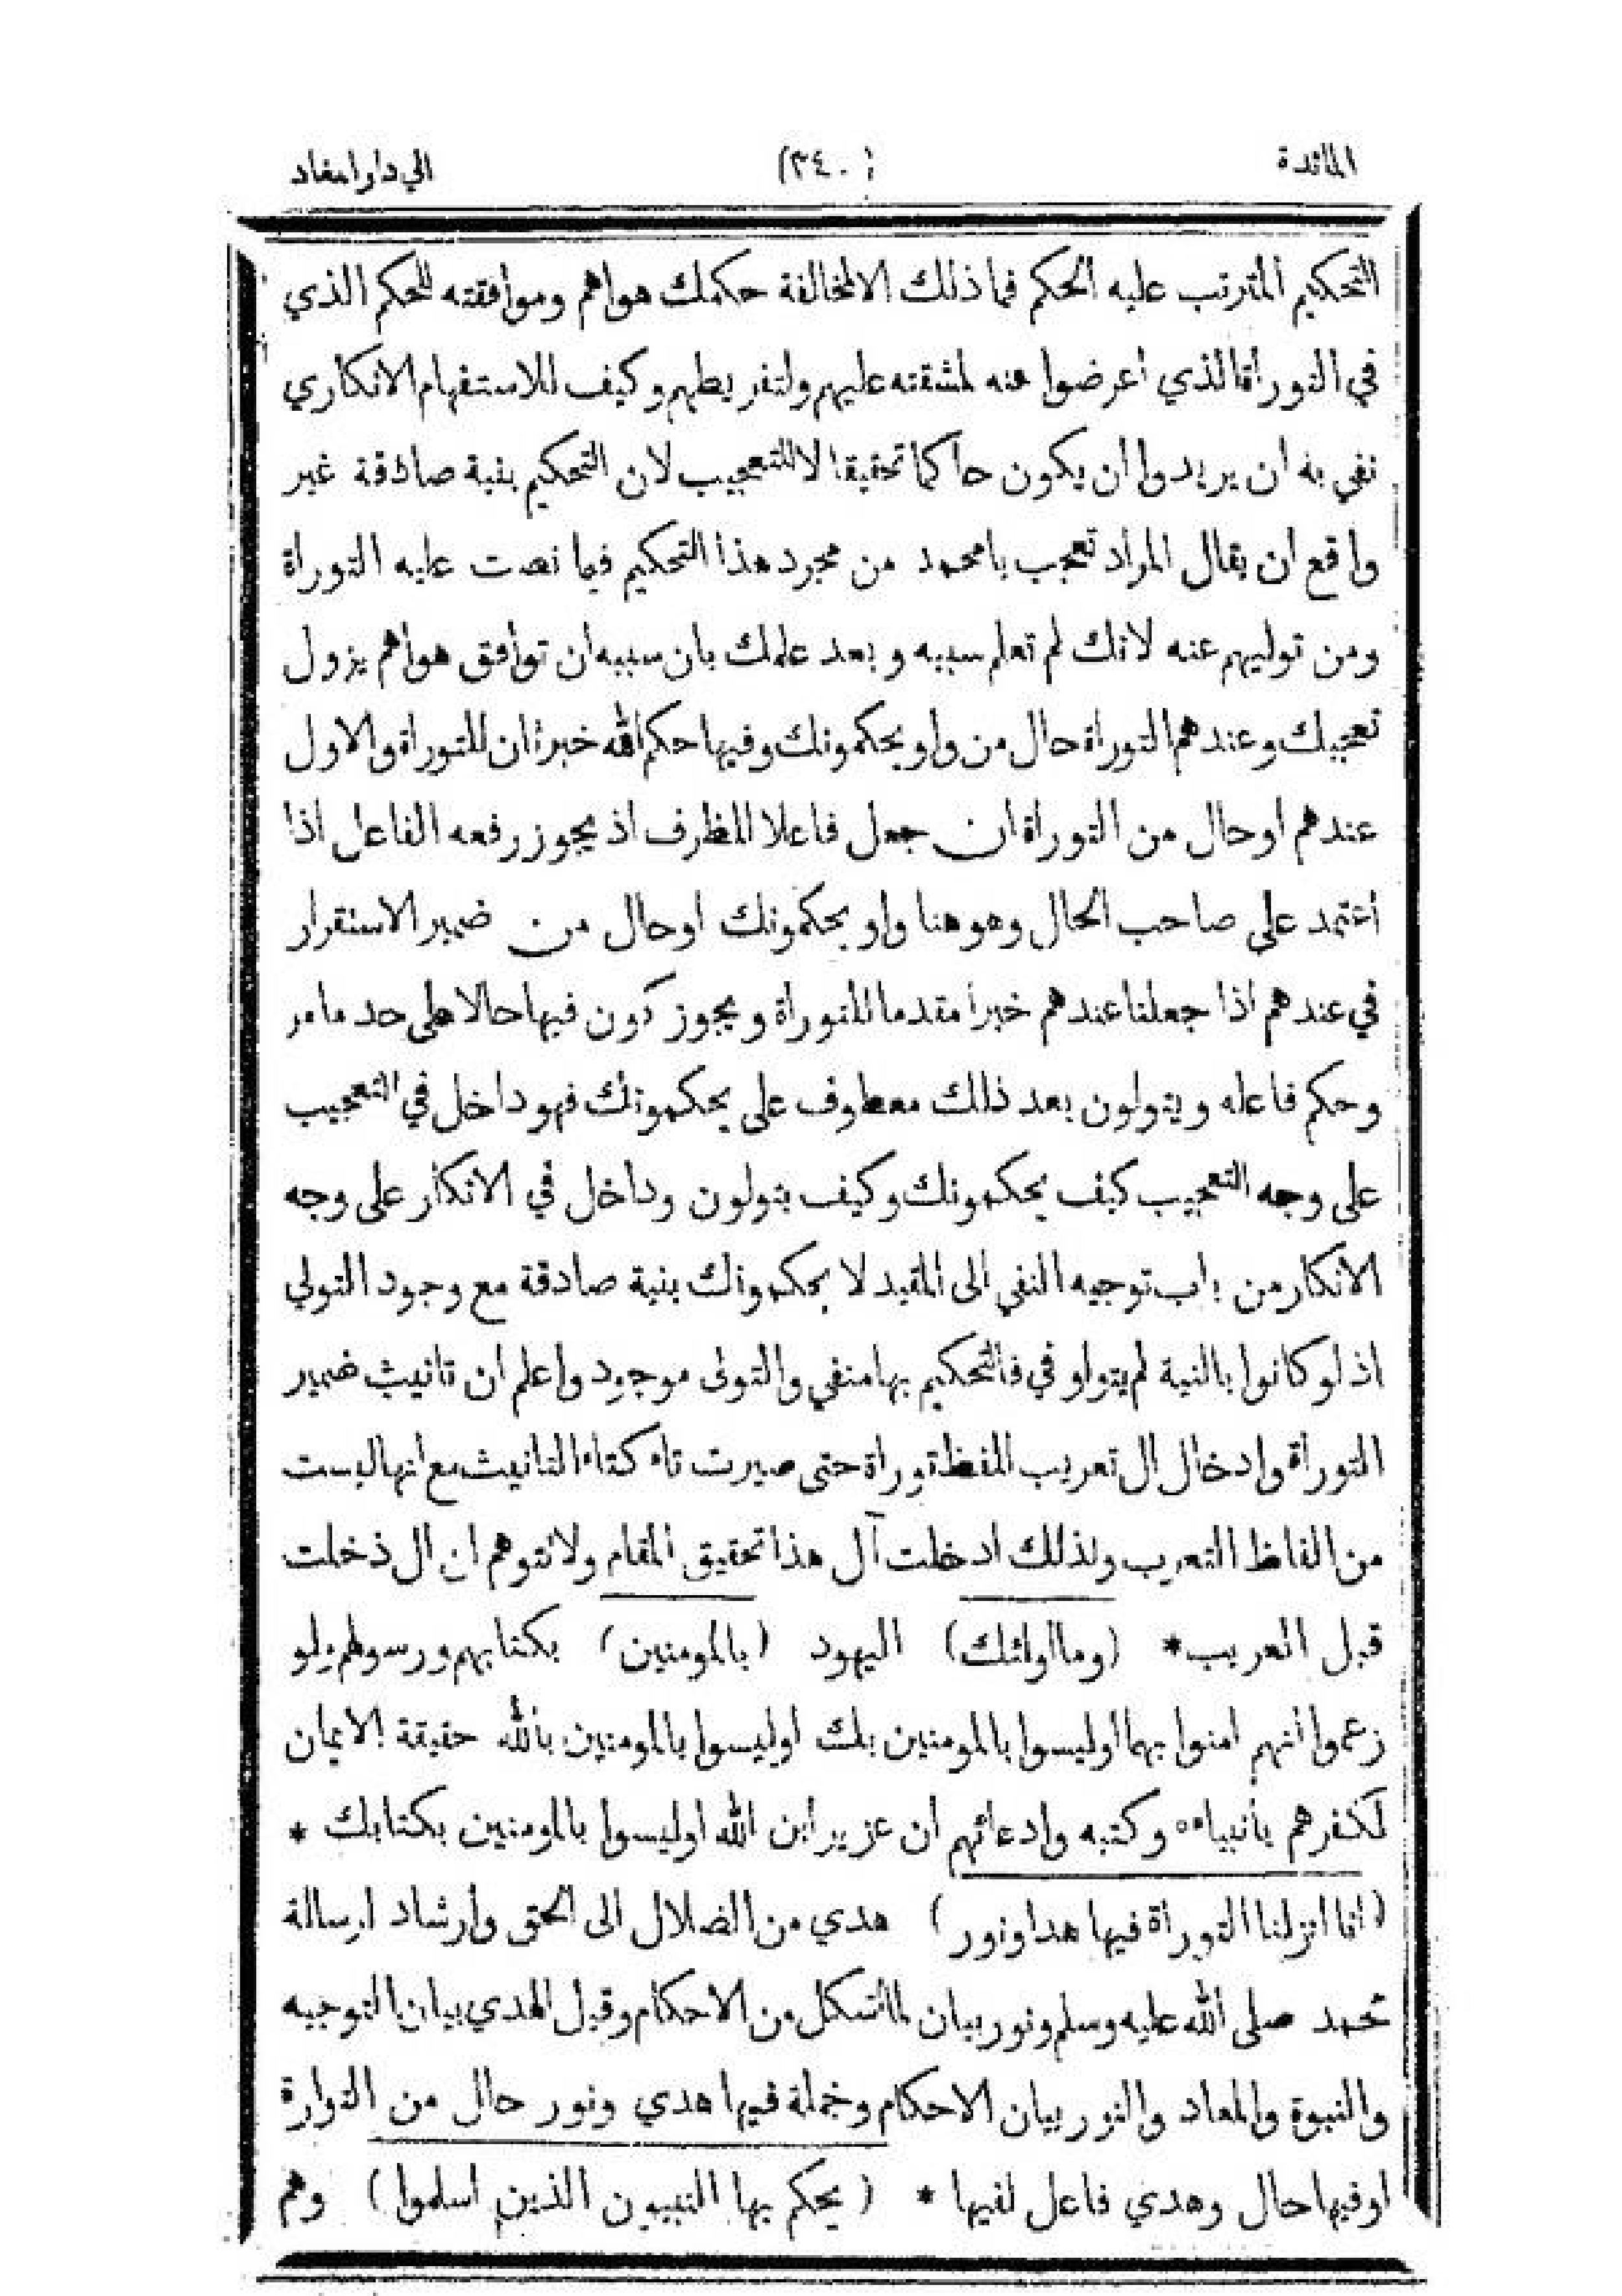 المائدة (٣٤٠) الي دار امعاد
التحكيم المترتب عليه الحكم فما ذلك الا لمخالفة حكمك هواهم وموافقته للحكم الذي
في التوراة الذي اعرضوا عنه لمشقته عليهم ولتفريطهم وكيف للاستفهام الانكاري
نفي به ان يريدوا ان يكون حاكما تحقيقا لا للتعجيب لان التحكيم بنية صادقة غير
واقع ان يقال المراد تعجب يا محمد من مجرد هذا التحكيم فيما نصت عليه التوراة
ومن توليهم عنه لانك لم تعلم سببه وبعد علمك بان سببه ان توافق هواهم يزول
تعجبك وعندهم التوراة حال من واو يحكمونك وفيها حكم الله خبر ثان للتوراة والاول
عندهم او حال من التوراة ان جعل فاعلا للظرف اذ يجوز رفعه الفاعل اذا
اعتمد على صاحب الحال وهو هنا واو يحكمونك او حال من ضمير الاستقرار
في عندهم اذا جعلنا عندهم خبرا مقدما للتوراة ويجوز كون فيها حالا على حد ما مر
وحكم فاعله ويتولون بعد ذلك معطوف على يحكمونك فهو داخل في التعجيب
على وجه التعجيب كيف يحكمونك وكيف يتولون وداخل في الانكار على وجه
الانكار من باب توجيه النفي الى المقيد لا يحكمونك بنية صادقة مع وجود التولي
اذ لو كانوا بالنية لم يتولو في فالتحكيم بها منفي والتولى موجود واعلم ان تانيث ضمير
التوراة وادخال ال تعريب للفظ توراة حتى صيرت تاه كتاء التانيث مع انها ليست
من الفاظ التعرب ولذلك ادخلت آل هذا تحقيق المقام ولا تتوهم ان ال دخلت
قبل التعريب * (وما اولئك) اليهود (بالمومنين) بكتابهم ورسولهم ولو
زعموا أنهم امنوا بهما اوليسوا بالمومنين بك اوليسوا بالمومنين بالله حقيقة الايمان
لكفرهم بأنبياءه وكتبه وادعائهم ان عزير ابن الله اوليسوا بالمومنين بكتابك *
(انا انزلنا التوراة فيها هدا ونور) هدي من الضلال الى الحق وارشاد لرسالة
محمد صلى الله عليه وسلم ونور بيان لما اشكل من الاحكام وقيل الهدي بيان التوجيه
والنبوة والمعاد والنور بيان الاحكام وجملة فيها هدي ونور حال من التوارة
او فيها حال وهدي فاعل لفيها * (يحكم بها النبيون الذين اسلموا) وهم